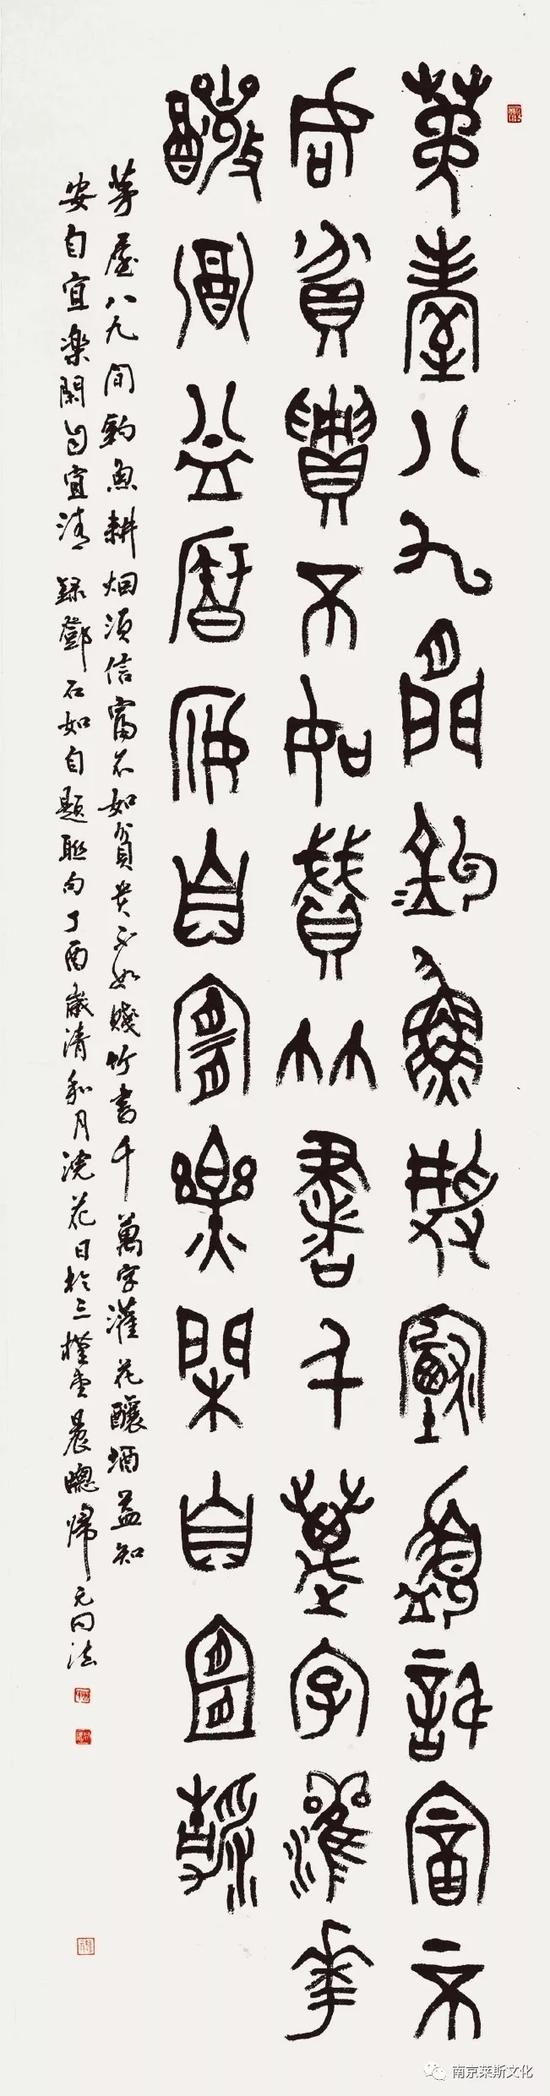 茅屋八九間釣魚耕烟須信富不
如貧貴不如賤竹書千萬字灌花
釀酒益知安自宜樂閑自宜清
茅屋八九間釣魚耕烟須信富不如貧貴不如賤竹書千萬字灌花釀酒益知
安自宜樂閑自宜清 錄鄧石如自題聯句丁酉歲清和月浣花日於三槿堂晨窗歸元同法
南京莱斯文化